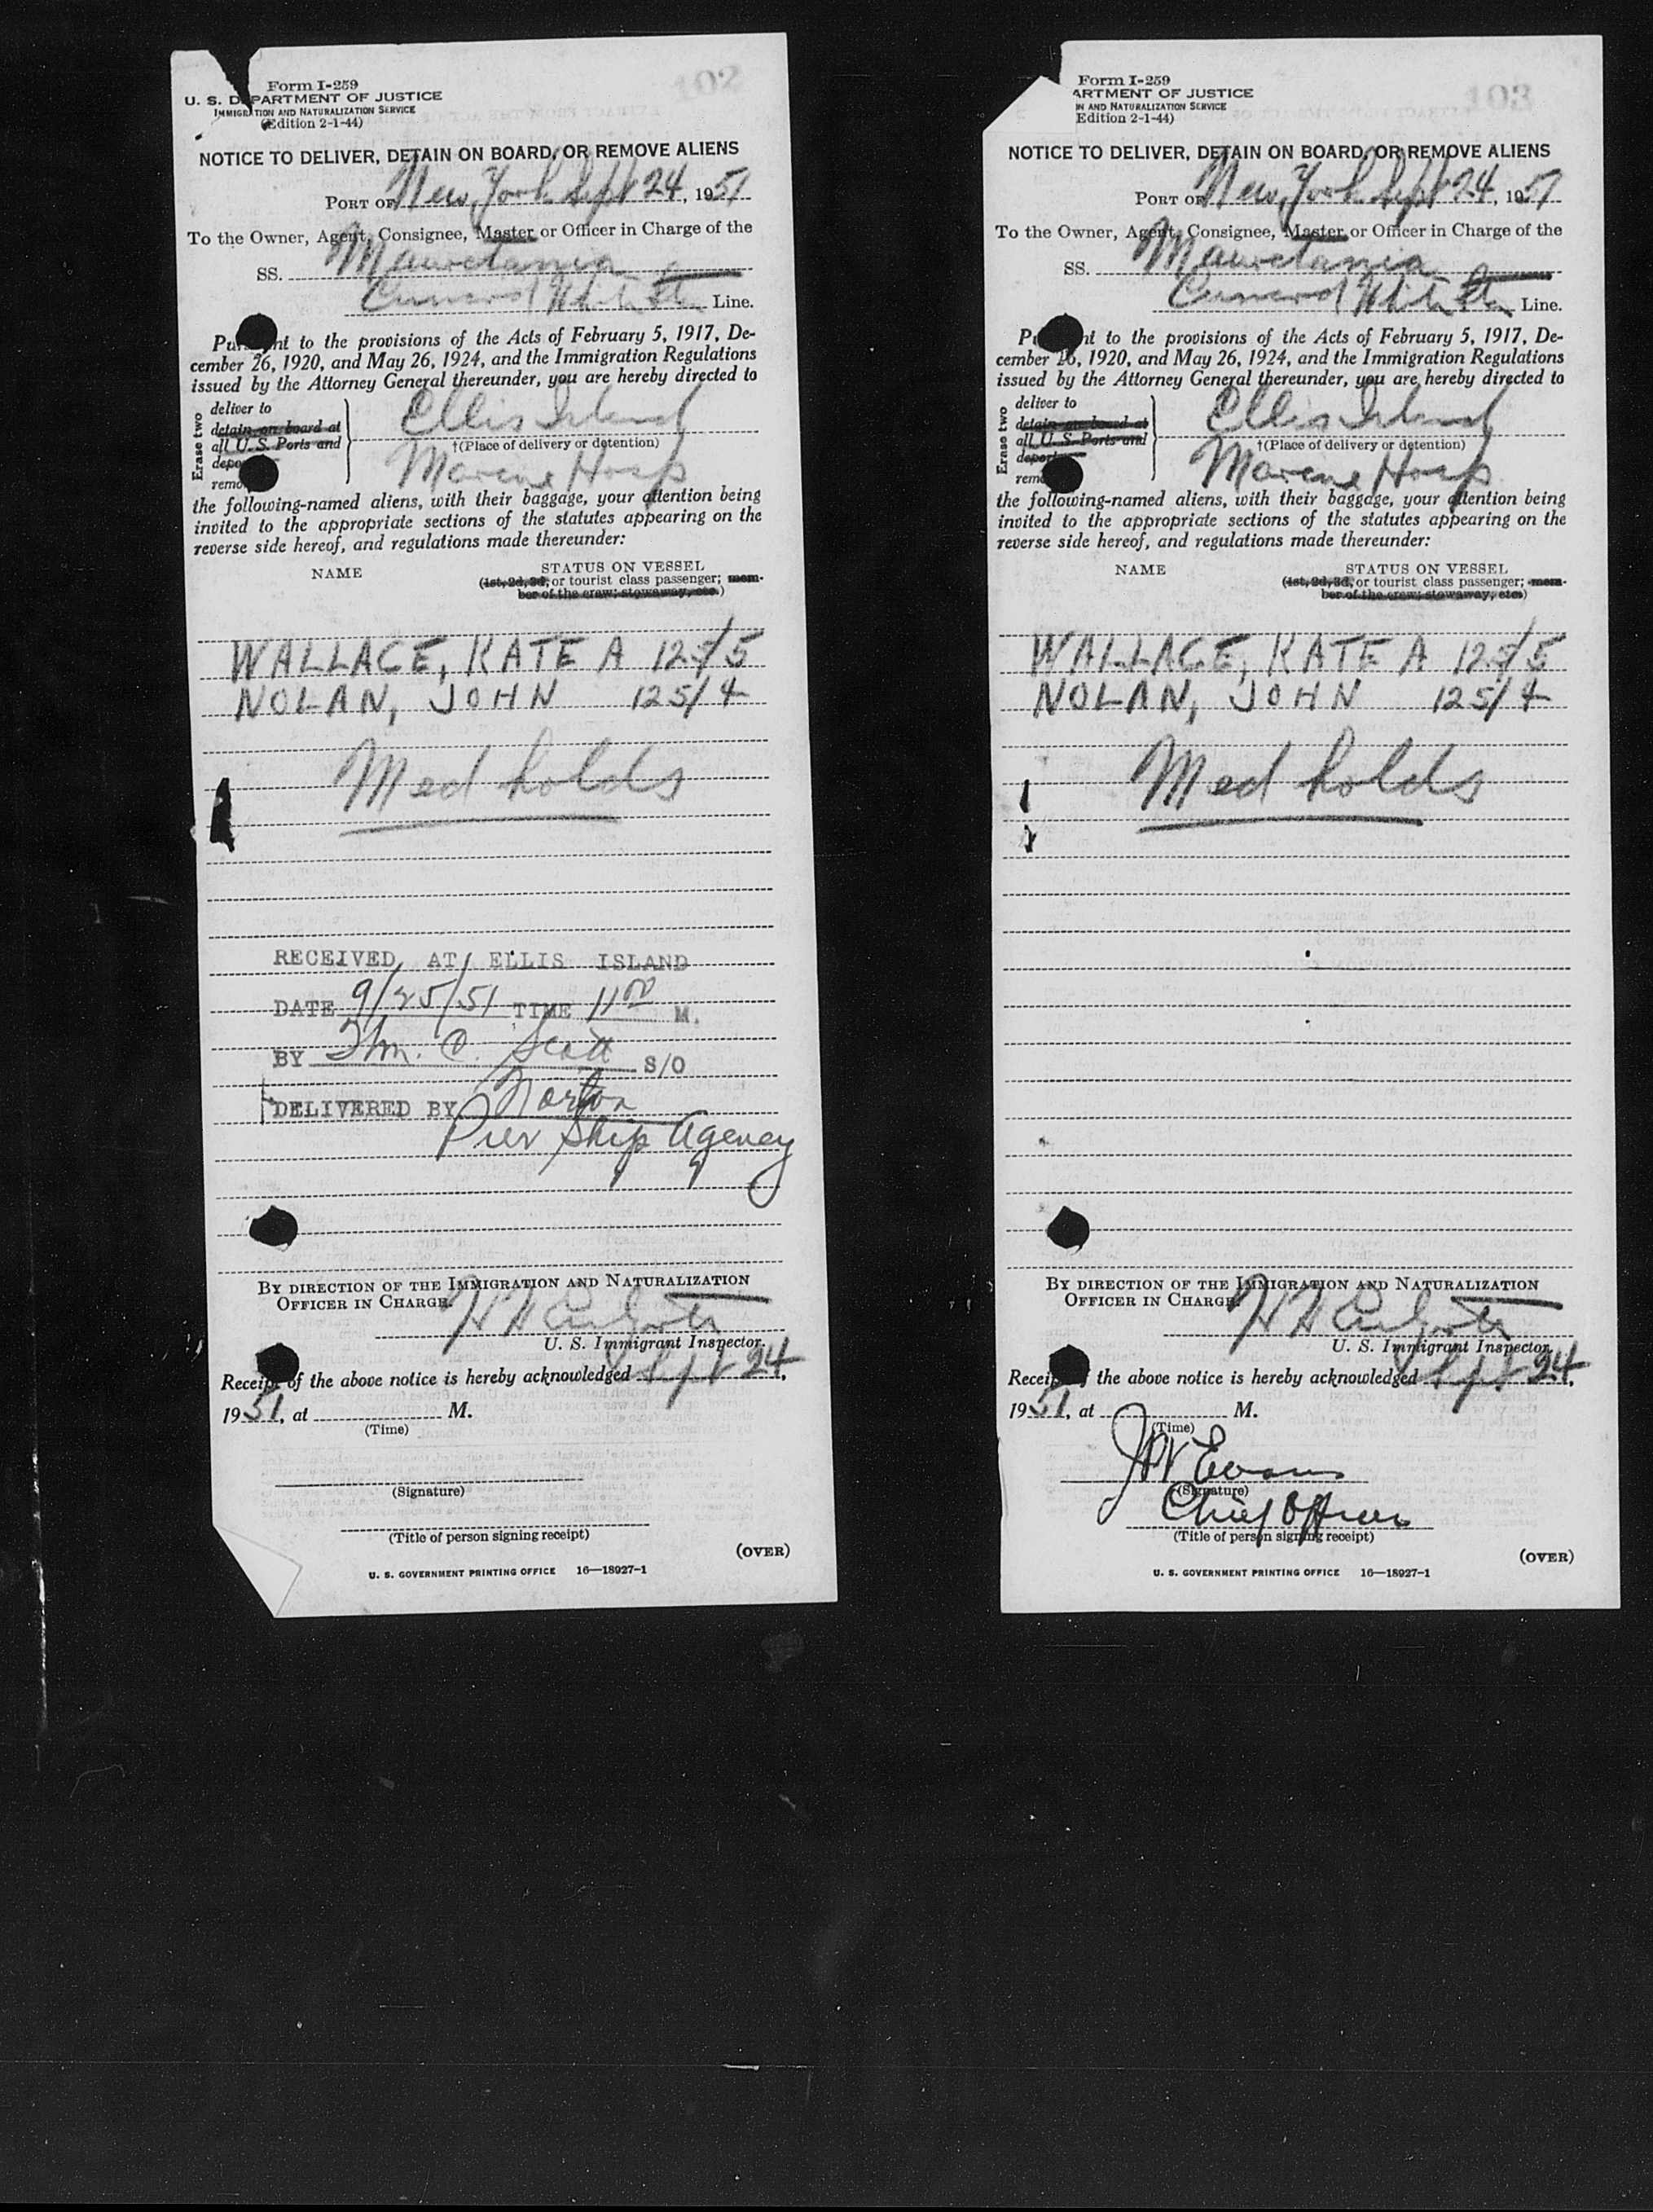 102
Form I-259
U. S. D PARTMENT OF JUSTICE
IMMIGRATION AND NATURALIZATION SERVICE
(Edition 2-1-44)
NOTICE TO DELIVER, DETAIN ON BOARD, OR REMOVE ALIENS
PORT OF New York Sept 24, 1951
To the Owner, Agent, Consignee, Master or Officer in Charge of the
SS. Mauretania
Cunard White Star Line.
Pu nt to the provisions of the Acts of February 5, 1917, De-
cember 26, 1920, and May 26, 1924, and the Immigration Regulations
issued by the Attorney General thereunder, you are hereby directed to
Erase two
deliver to
detain on board at
all U. S. Ports and
depo
remo
Ellis Island
†(Place of delivery or detention)
Marine Hosp
the following-named aliens, with their baggage, your attention being
invited to the appropriate sections of the statutes appearing on the
reverse side hereof, and regulations made thereunder:
NAME STATUS ON VESSEL
(1st, 2d, 3d, or tourist class passenger; mem-
ber of the crew; stowaway, etc.)
WALLACE, KATE A 125/5
NOLAN, JOHN 125/4
Med holds
RECEIVED AT ELLIS ISLAND
DATE 9/25/51 TIME 11 00 M.
BY C. Scott S/O
DELIVERED BY Norton
Pier Ship Agency
BY DIRECTION OF THE IMMIGRATION AND NATURALIZATION
OFFICER IN CHARGE.
U. S. Immigrant Inspector.
Receipt of the above notice is hereby acknowledged Sept 24,
1951, at M.
(Time)
(Signature)
(Title of person signing receipt)
(OVER)
U. S. GOVERNMENT PRINTING OFFICE 16—18927-1
103
Form I-259
ARTMENT OF JUSTICE
N AND NATURALIZATION SERVICE
Edition 2-1-44)
NOTICE TO DELIVER, DETAIN ON BOARD, OR REMOVE ALIENS
PORT OF New York Sept 24, 1951
To the Owner, Agent, Consignee, Master or Officer in Charge of the
SS. Mauretania
Cunard White Star Line.
Pu nt to the provisions of the Acts of February 5, 1917, De-
cember 26, 1920, and May 26, 1924, and the Immigration Regulations
issued by the Attorney General thereunder, you are hereby directed to
Erase two
deliver to
detain on board at
all U. S. Ports and
deport
remo
Ellis Island
†(Place of delivery or detention)
Marine Hosp
the following-named aliens, with their baggage, your attention being
invited to the appropriate sections of the statutes appearing on the
reverse side hereof, and regulations made thereunder:
NAME STATUS ON VESSEL
(1st, 2d, 3d, or tourist class passenger; mem-
ber of the crew; stowaway, etc.)
WALLACE, KATE A 125/5
NOLAN, JOHN 125/4
Med holds
BY DIRECTION OF THE IMMIGRATION AND NATURALIZATION
OFFICER IN CHARGE.
U. S. Immigrant Inspector.
Receipt of the above notice is hereby acknowledged Sept 24,
1951, at M.
(Time)
Evans
(Signature)
Chief Officer
(Title of person signing receipt)
(OVER)
U. S. GOVERNMENT PRINTING OFFICE 16—18927-1